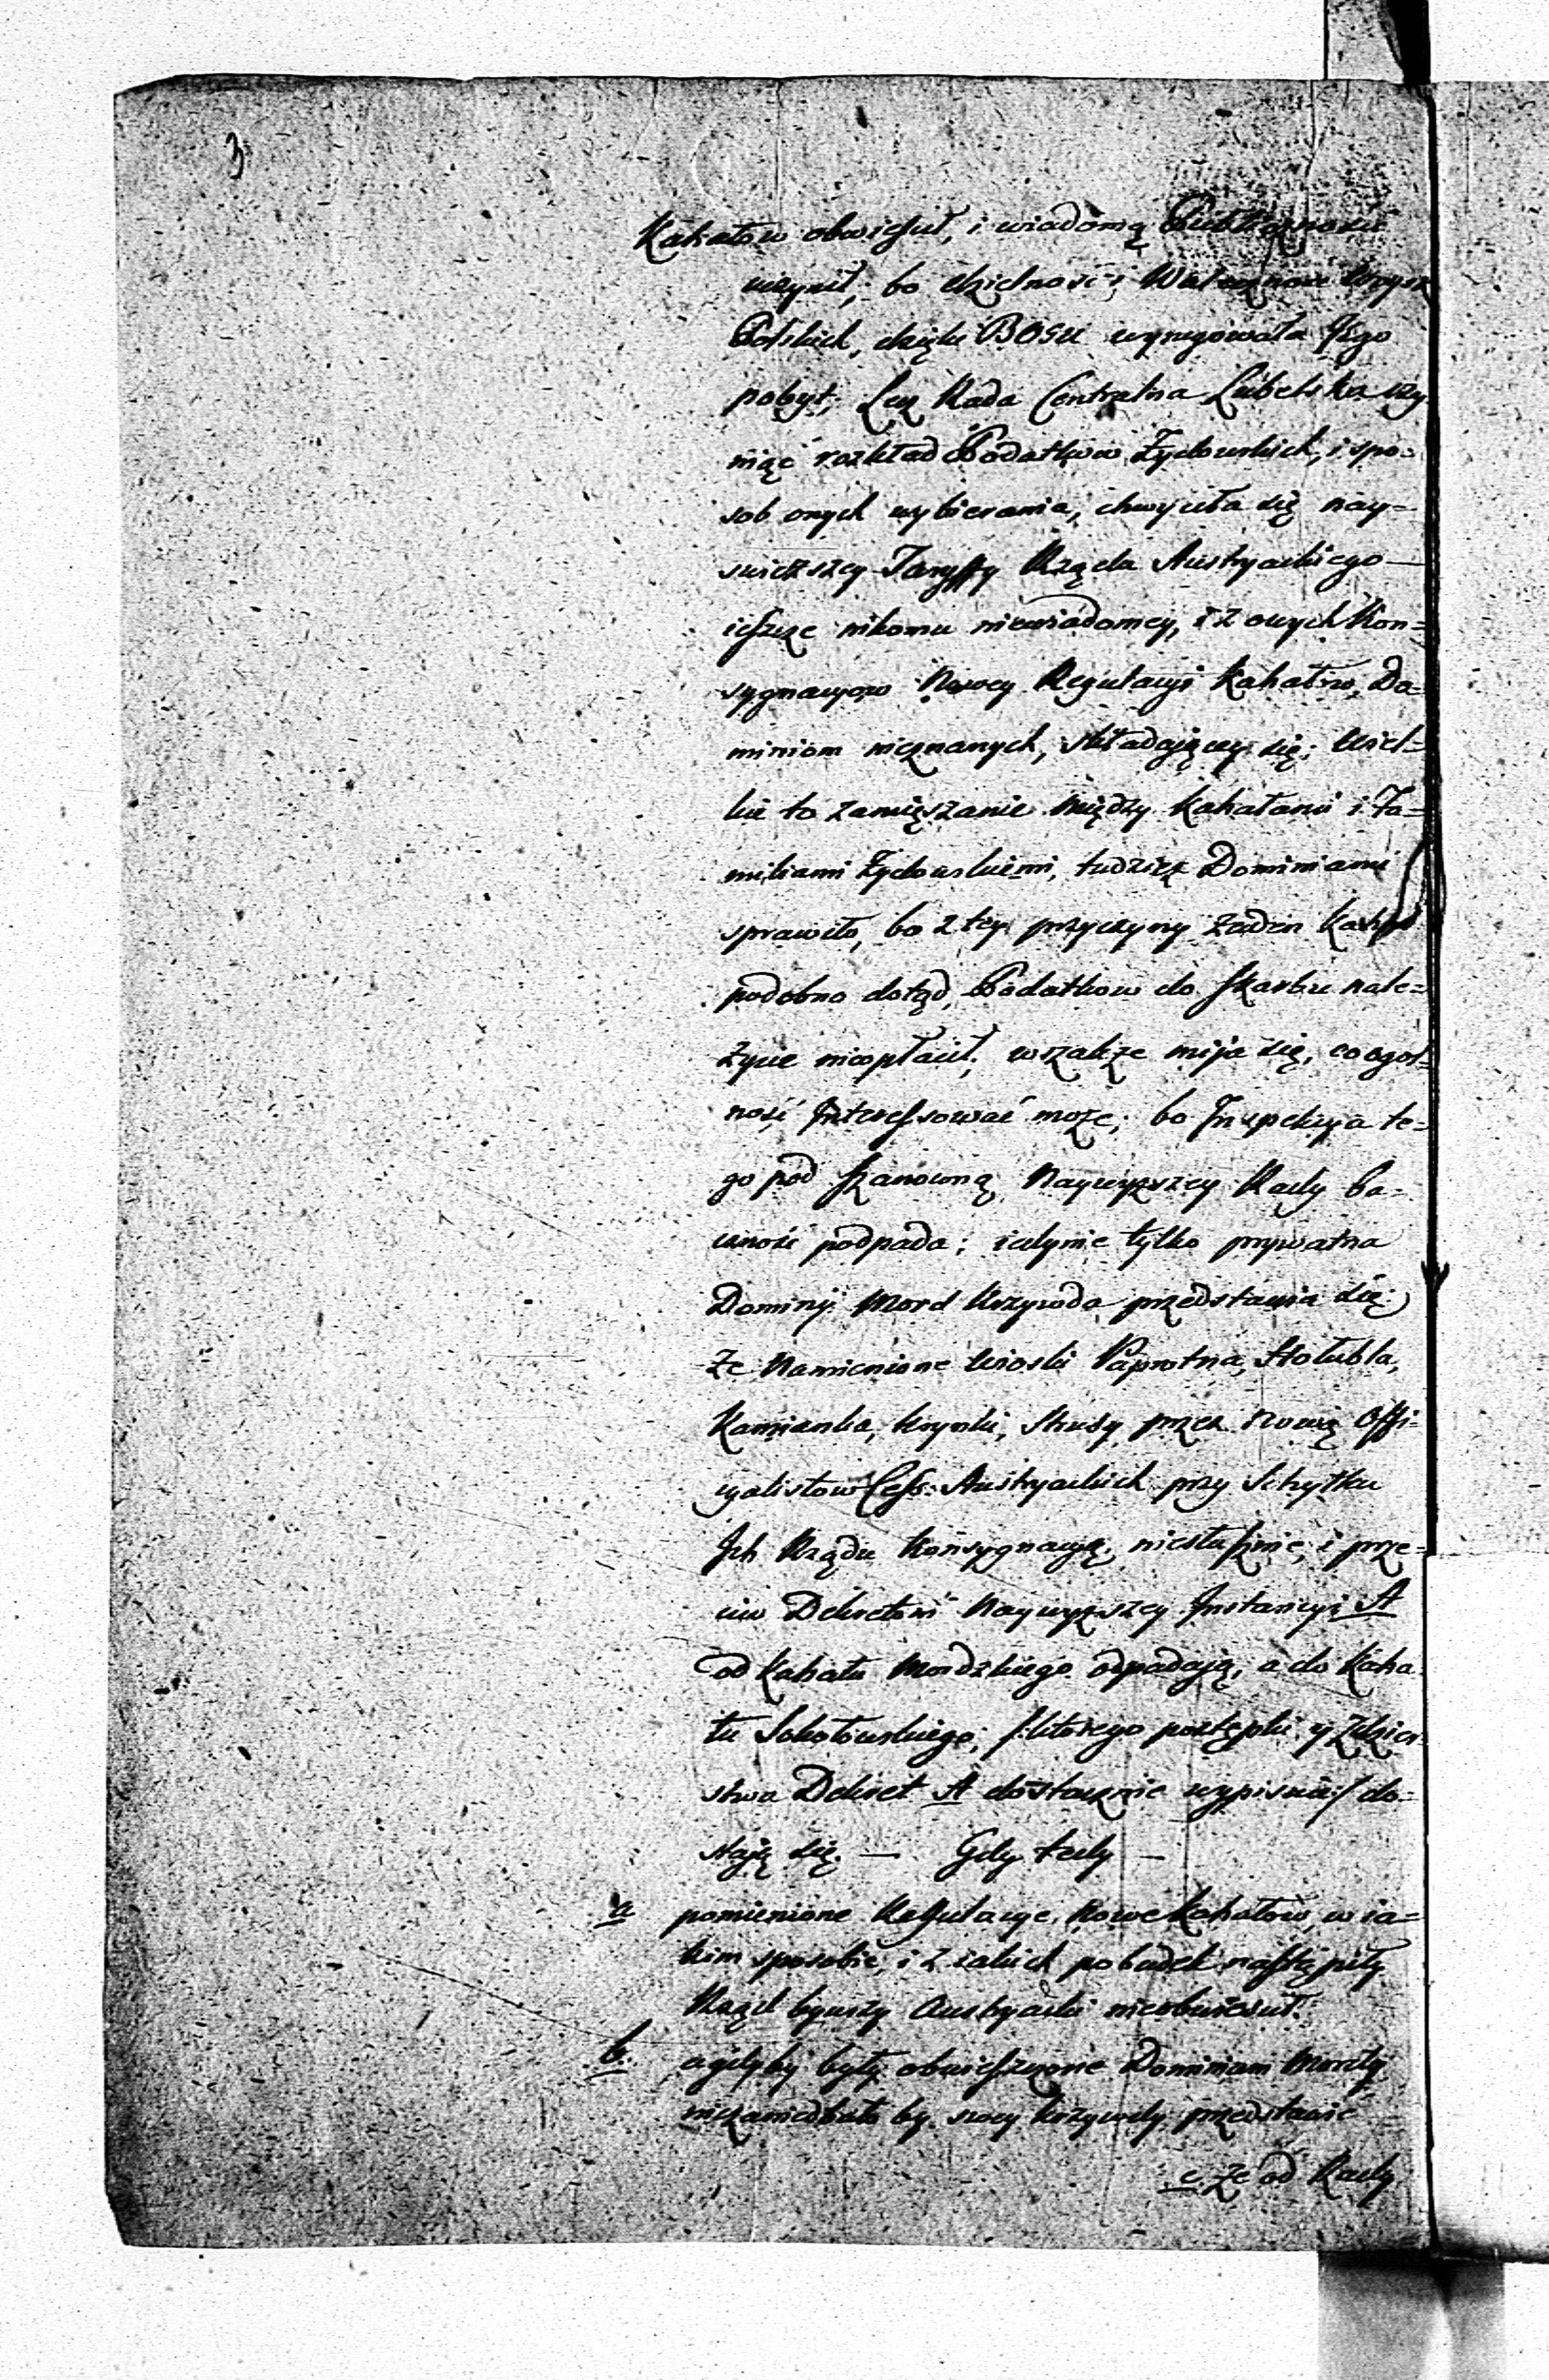 3
Kahałow obwieścił, i wiadomą Publiczności
uczynił; bo dzielność i Waleczność Woysk
Polskich, dzięki BOGU wyrugowała Jego
pobyt; Lecz Rada Centralna Lubelska czy
niąc rozkład Podatkow Żydowskich, i spo-
sob onych wybierania, chwyciła się nay-
swieższey Taryffy Rządu Austryackiego —
ieszcze nikomu niewiadomey, i z owych Kon-
sygnacyow Nowey Regulacyi Kahałow, Do-
miniom nieznanych, składaiącey się; Wiel-
kie to zamięszanie między Kahałami i Fa-
miliami Żydowskiemi, tudzież Dominiami
sprawiło, bo z tey przyczyny żaden Kahał
podobno dotąd, Podatkow do Skarbu nale-
życie niepłacił; wszakże mija się, co ogol-
ność Interessować może; bo Inspekcya te-
go pod Szanowną Naywyższey Rady ba-
czność podpada; iedynie tylko prywatna
Dominij Mord Krzywda przedstawia się:
Że Namienione Wioski Paprotna, Hołubla,
Kamianka, Krynki, Strusy przez nową Offi-
cyalistow Cess: Austryackich przy Schyłku
Ich Rządu Konsygnacyą, niesłusznie, i prze-
ciw Dekretowi Naywyższey Instancyi A
od Kahału Mordzkiego odpadaią, a do Kaha-
łu Sokołowskiego; /:ktorego postępki y Zdzier-
stwa Dekret A dostatecznie wypisuie:/ do-
staią się. — Gdy tedy —
a pomienione Regulacye, Nowe Kahałow, w ia-
kim sposobie, i z iakich pobudek nastąpiły
Rząd bywszy Austryacki nieobwieścił.
b. a gdyby były obwieszczone Dominium Mordy
niezaniedbało by swey krzywdy przedstawić
c. że od Rady